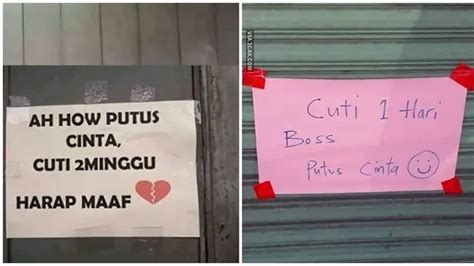 AH HOW PUTUS
CINTA,
CUTI 2MINGGU
HARAP MAAF
Cuti 1 Hari
Boss
Putus Cinta
VIA 1CAK.COM